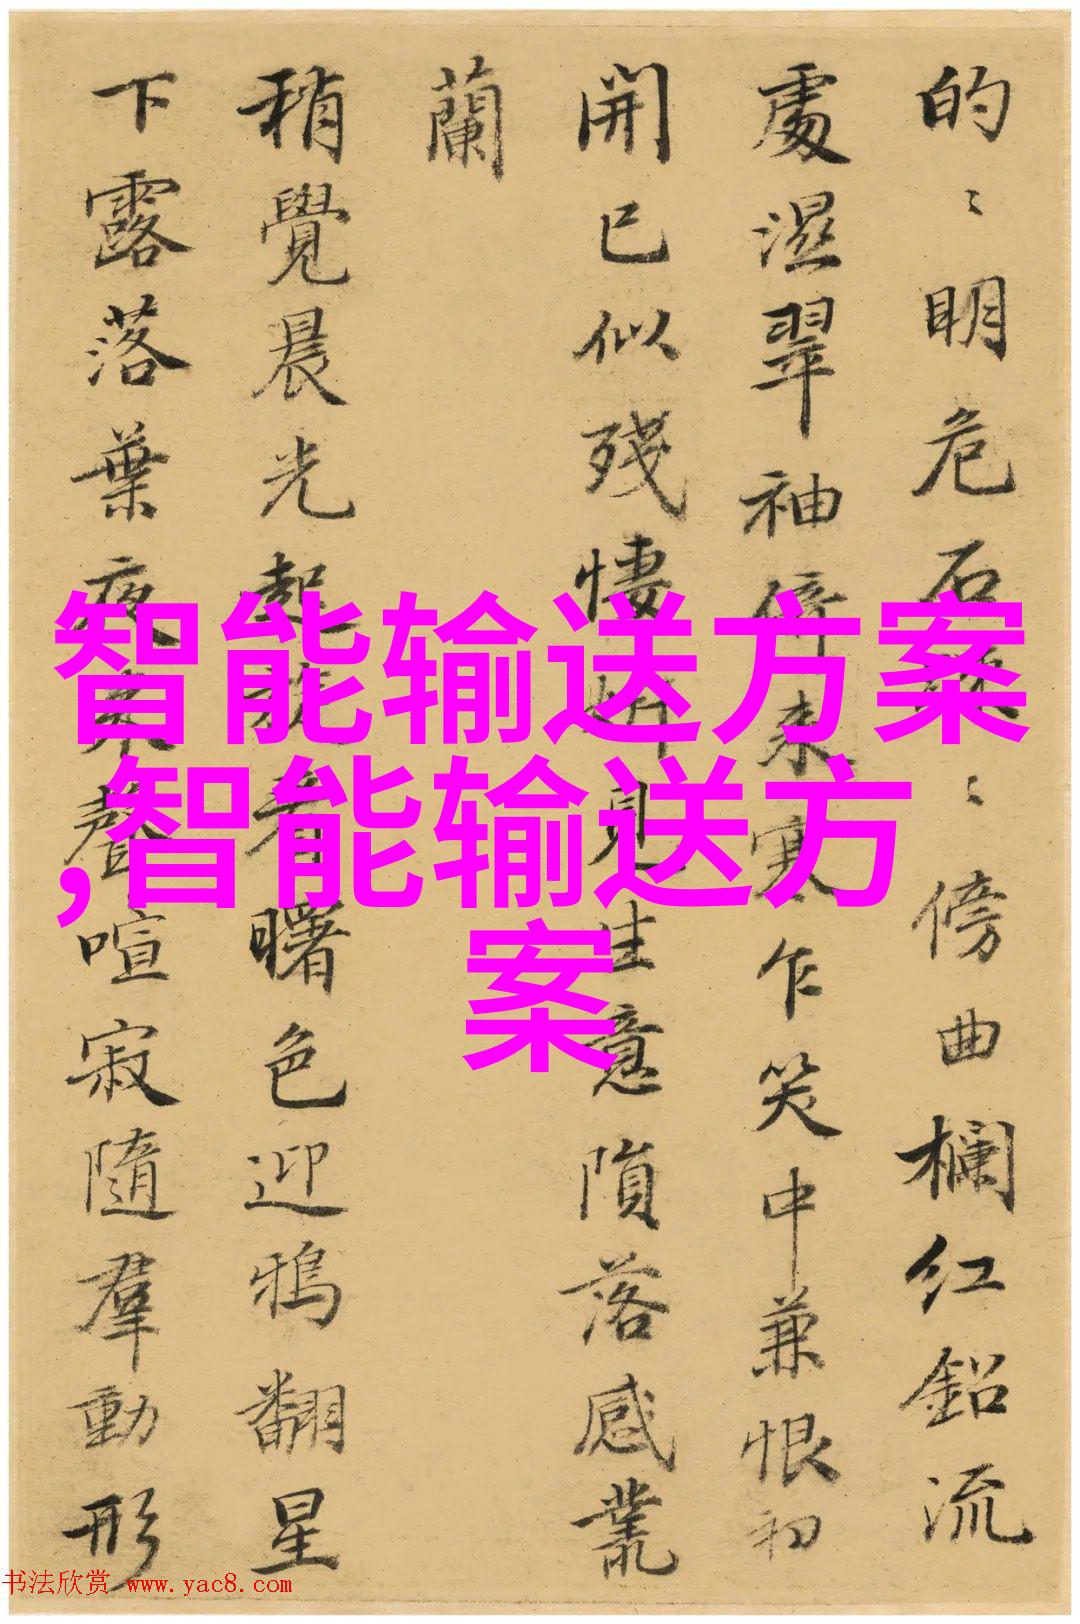 的〻明危石
傍曲欄红鉛流
處濕翠袖
来寒乍笑中兼恨初
開已似殘悽
見生意隕落感叢
蘭
稍覺晨光起
看曙色迎鴉翻星
下露落葉夜
聲喧寂隨羣動形
智能输送方案
,智能输送方
案
书法欣赏 www.yac8.com